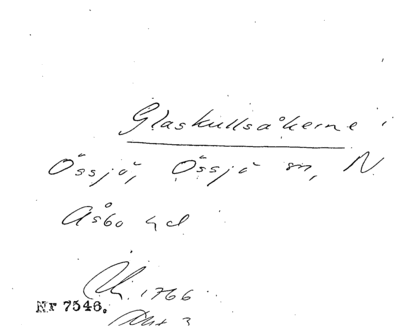 Glaskullsåkerne i
Össjö, Össjö sn, N
Åsbo hd
1766
Nr 7546.